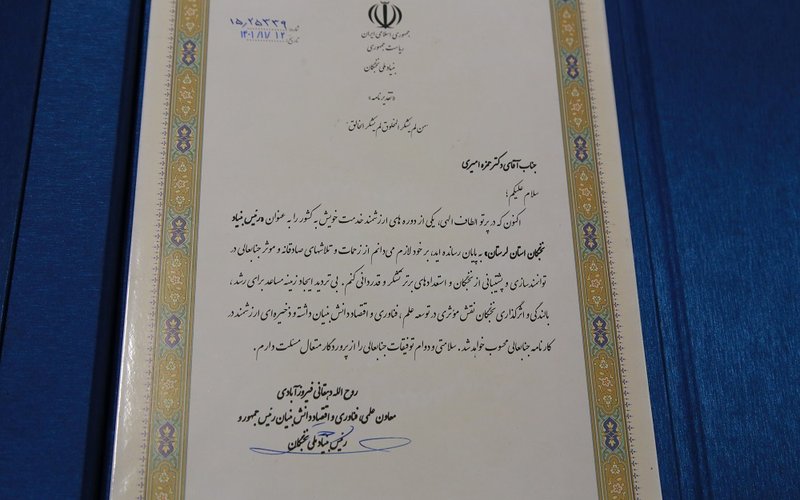 شماره: ۱۵٫۲۵۳۳۹
تاریخ: ۱۴۰۱/۱۱/۱۲
جمهوری اسلامی ایران
ریاست جمهوری
بنیاد ملی نخبگان
«تقدیرنامه»
من لم یشکر المخلوق لم یشکر الخالق
جناب آقای دکتر حمزه امیری
سلام علیکم؛
اکنون که در پرتو الطاف الهی، یکی از دوره های ارزشمند خدمت خویش به کشور را به عنوان «رئیس بنیاد
نخبگان استان لرستان» به پایان رسانده اید، بر خود لازم می‌دانم از زحمات و تلاشهای صادقانه و موثر جنابعالی در
توانمندسازی و پشتیبانی از نخبگان و استعدادهای برتر تشکر و قدردانی کنم. بی‌تردید ایجاد زمینه مساعد برای رشد،
بالندگی و اثرگذاری نخبگان نقش مؤثری در توسعه علم، فناوری و اقتصاد دانش بنیان داشته و ذخیره‌ای ارزشمند در
کارنامه جنابعالی محسوب خواهد شد. سلامتی و دوام توفیقات جنابعالی را از پروردگار متعال مسئلت دارم.
روح الله دهقانی فیروزآبادی
معاون علمی، فناوری و اقتصاد دانش بنیان رئیس جمهور و
رئیس بنیاد ملی نخبگان